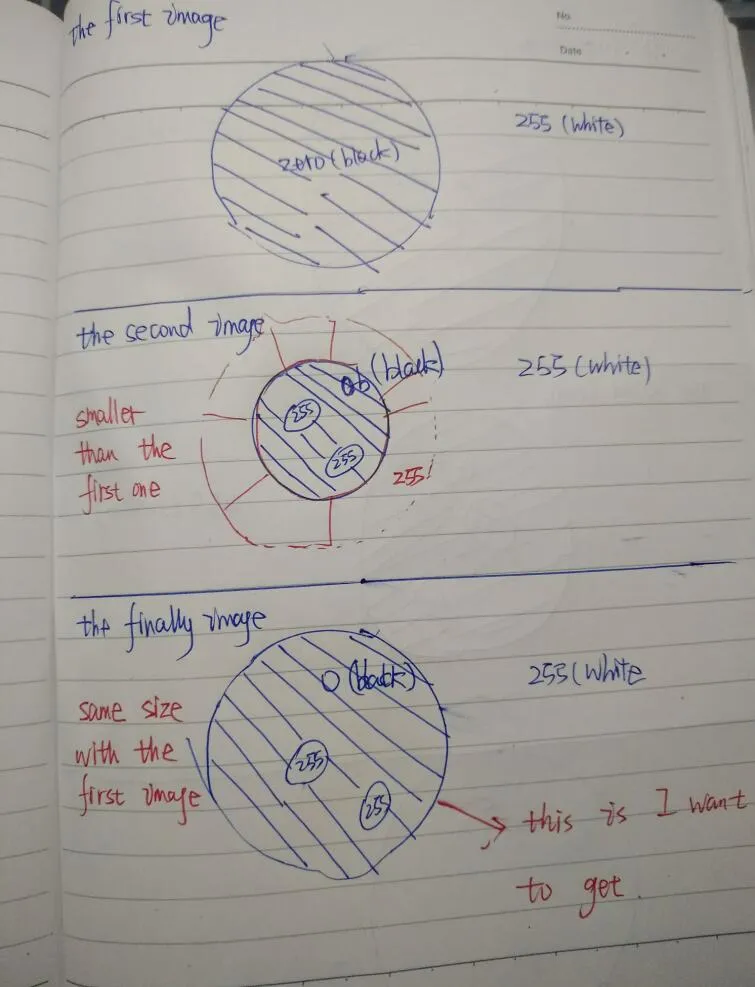 the first image
No
Date
255 (white)
zero (black)
the second image
(black)
255 (white)
smaller
than the
first one
255
255
255
the finally image
0 (black)
255 (white
same size
with the
first image
255
255
this is I want
to get.